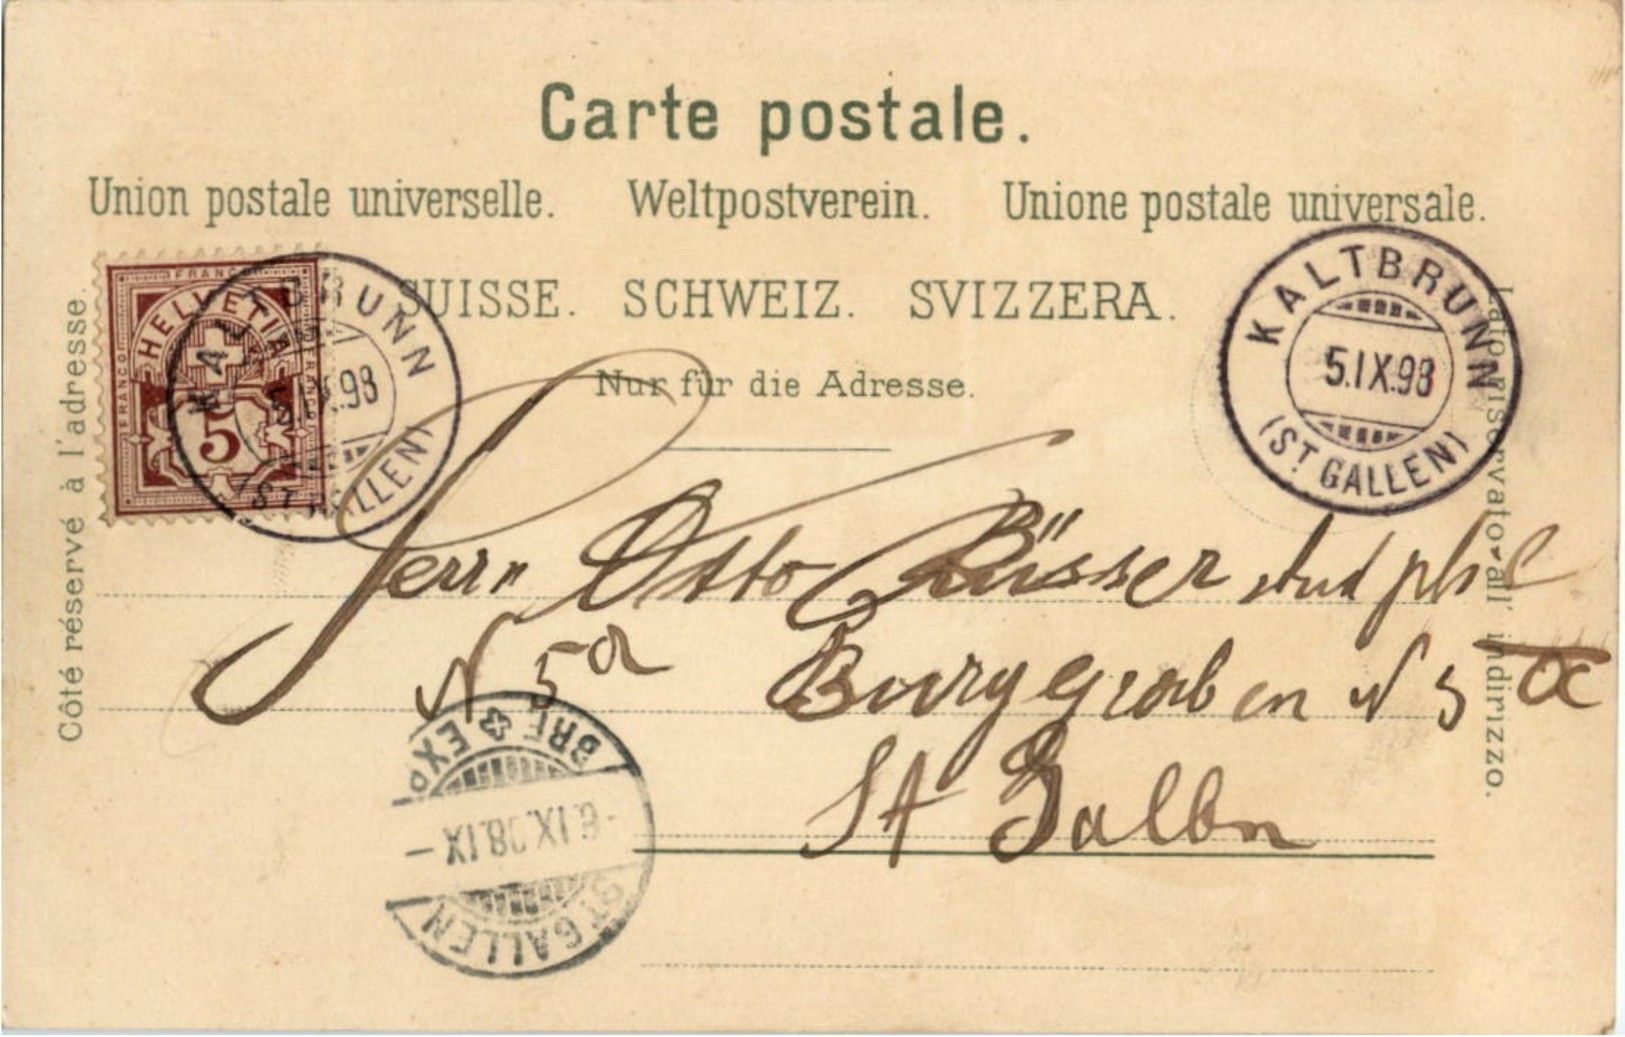 Carte postale.
Union postale universelle. Weltpostverein. Unione postale universale.
SUISSE. SCHWEIZ. SVIZZERA.
Nur für die Adresse.
Côté réservé à l'adresse.
Lato riservato all' indirizzo.
FRANCO
HELVETIA
FRANCO
FRANCO
5
KALTBRUNN
5.IX.98
(ST. GALLEN)
KALTBRUNN
5.IX.98
(ST. GALLEN)
Herrn Otto Büsser stud phil
N 5a Burggraben N 5
St Gallen
BRF EXP
6.IX.98.IX-
ST GALLEN